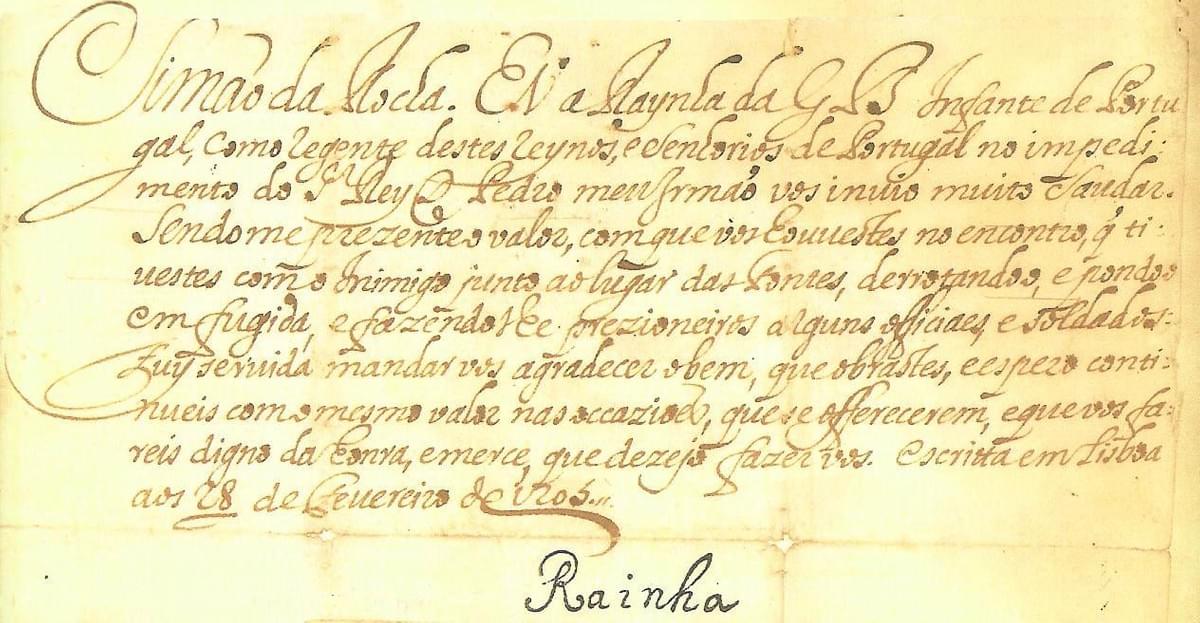 Simão da Rocha. EV a Raynha da G B Infante de Portu
gal, como regente destes reynos, e senhorios de Portugal no impedi:
mento do S.r Rey D. Pedro meu Irmão vos invio muito saudar.
Sendome prezente o valor, com que vos houvestes no encontro, q̃ ti:
vestes com o Inimigo junto ao lugar das Fontes, derrotandoo, e pondoo
em fugida, e fazendolhe prezioneiros alguns officiaes, e soldados:
Fuy servida mandar vos agradecer o bem, que obrastes, e espero conti:
nueis com o mesmo valor nas occazioẽs, que se offerecerem, e que vos fa:
reis digno da honra, e merce, que dezejo fazer vos. escritta em Lisboa
aos 28 de Fevereiro de 1705...
Rainha